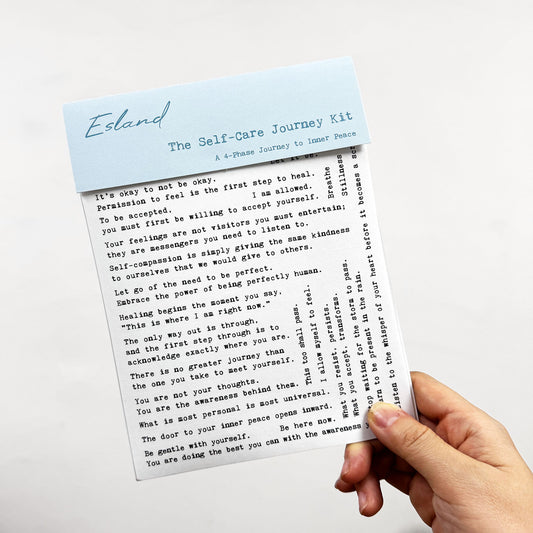 Esland
The Self-Care Journey Kit
A 4-Phase Journey to Inner Peace
Let it be.
It's okay to not be okay.
Permission to feel is the first step to heal.
To be accepted. I am allowed.
you must first be willing to accept yourself.
Your feelings are not visitors you must entertain;
they are messengers you need to listen to.
Self-compassion is simply giving the same kindness
to ourselves that we would give to others.
Let go of the need to be perfect.
Embrace the power of being perfectly human.
Healing begins the moment you say.
"This is where I am right now."
The only way out is through.
and the first step through is to
acknowledge exactly where you are.
There is no greater journey than
the one you take to meet yourself.
You are not your thoughts.
You are the awareness behind them.
What is most personal is most universal.
The door to your inner peace opens inward.
Be gentle with yourself. Be here now.
You are doing the best you can with the awareness
This too shall pass.
I allow myself to feel.
What you resist, persists.
What you accept, transforms.
waiting for the storm to pass.
to be present in the rain.
to the whisper of your heart before it becomes a
Breathe
Stillness